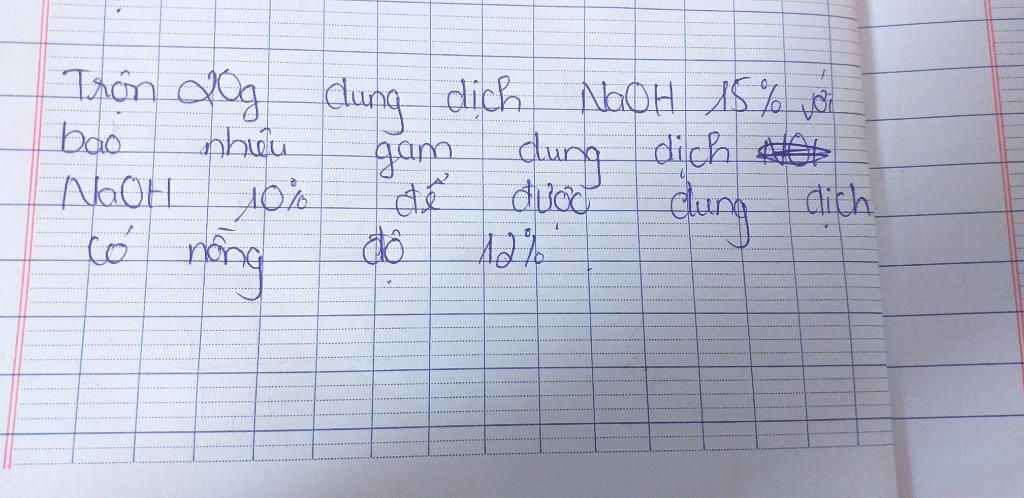 Trộn 20g dung dịch NaOH 15% với
bao nhiêu gam dung dịch
NaOH 10% để được dung dịch
có nồng độ 12%.